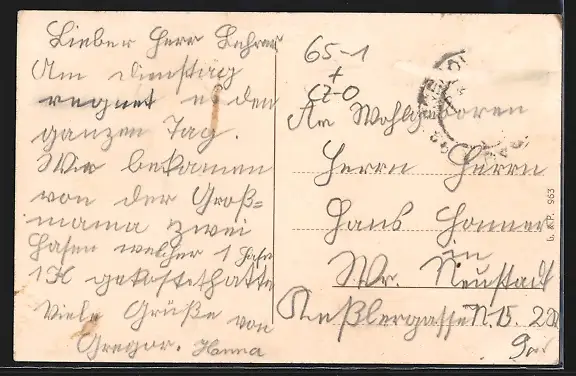 Lieber Herr Lehrer
Am Dienstag
regnet es den
ganzen Tag.
Wir bekamen
von der Groß=
mama zwei
Hasen welcher 1 Hase
1 K gekostet hatte
Viele Grüße von
Gregor. Hanna
65-1
+
CZ-0
An Wohlgeboren
Herrn Herrn
Hans
in
Wr. Neustadt
Keßlergasse N. 15.
963